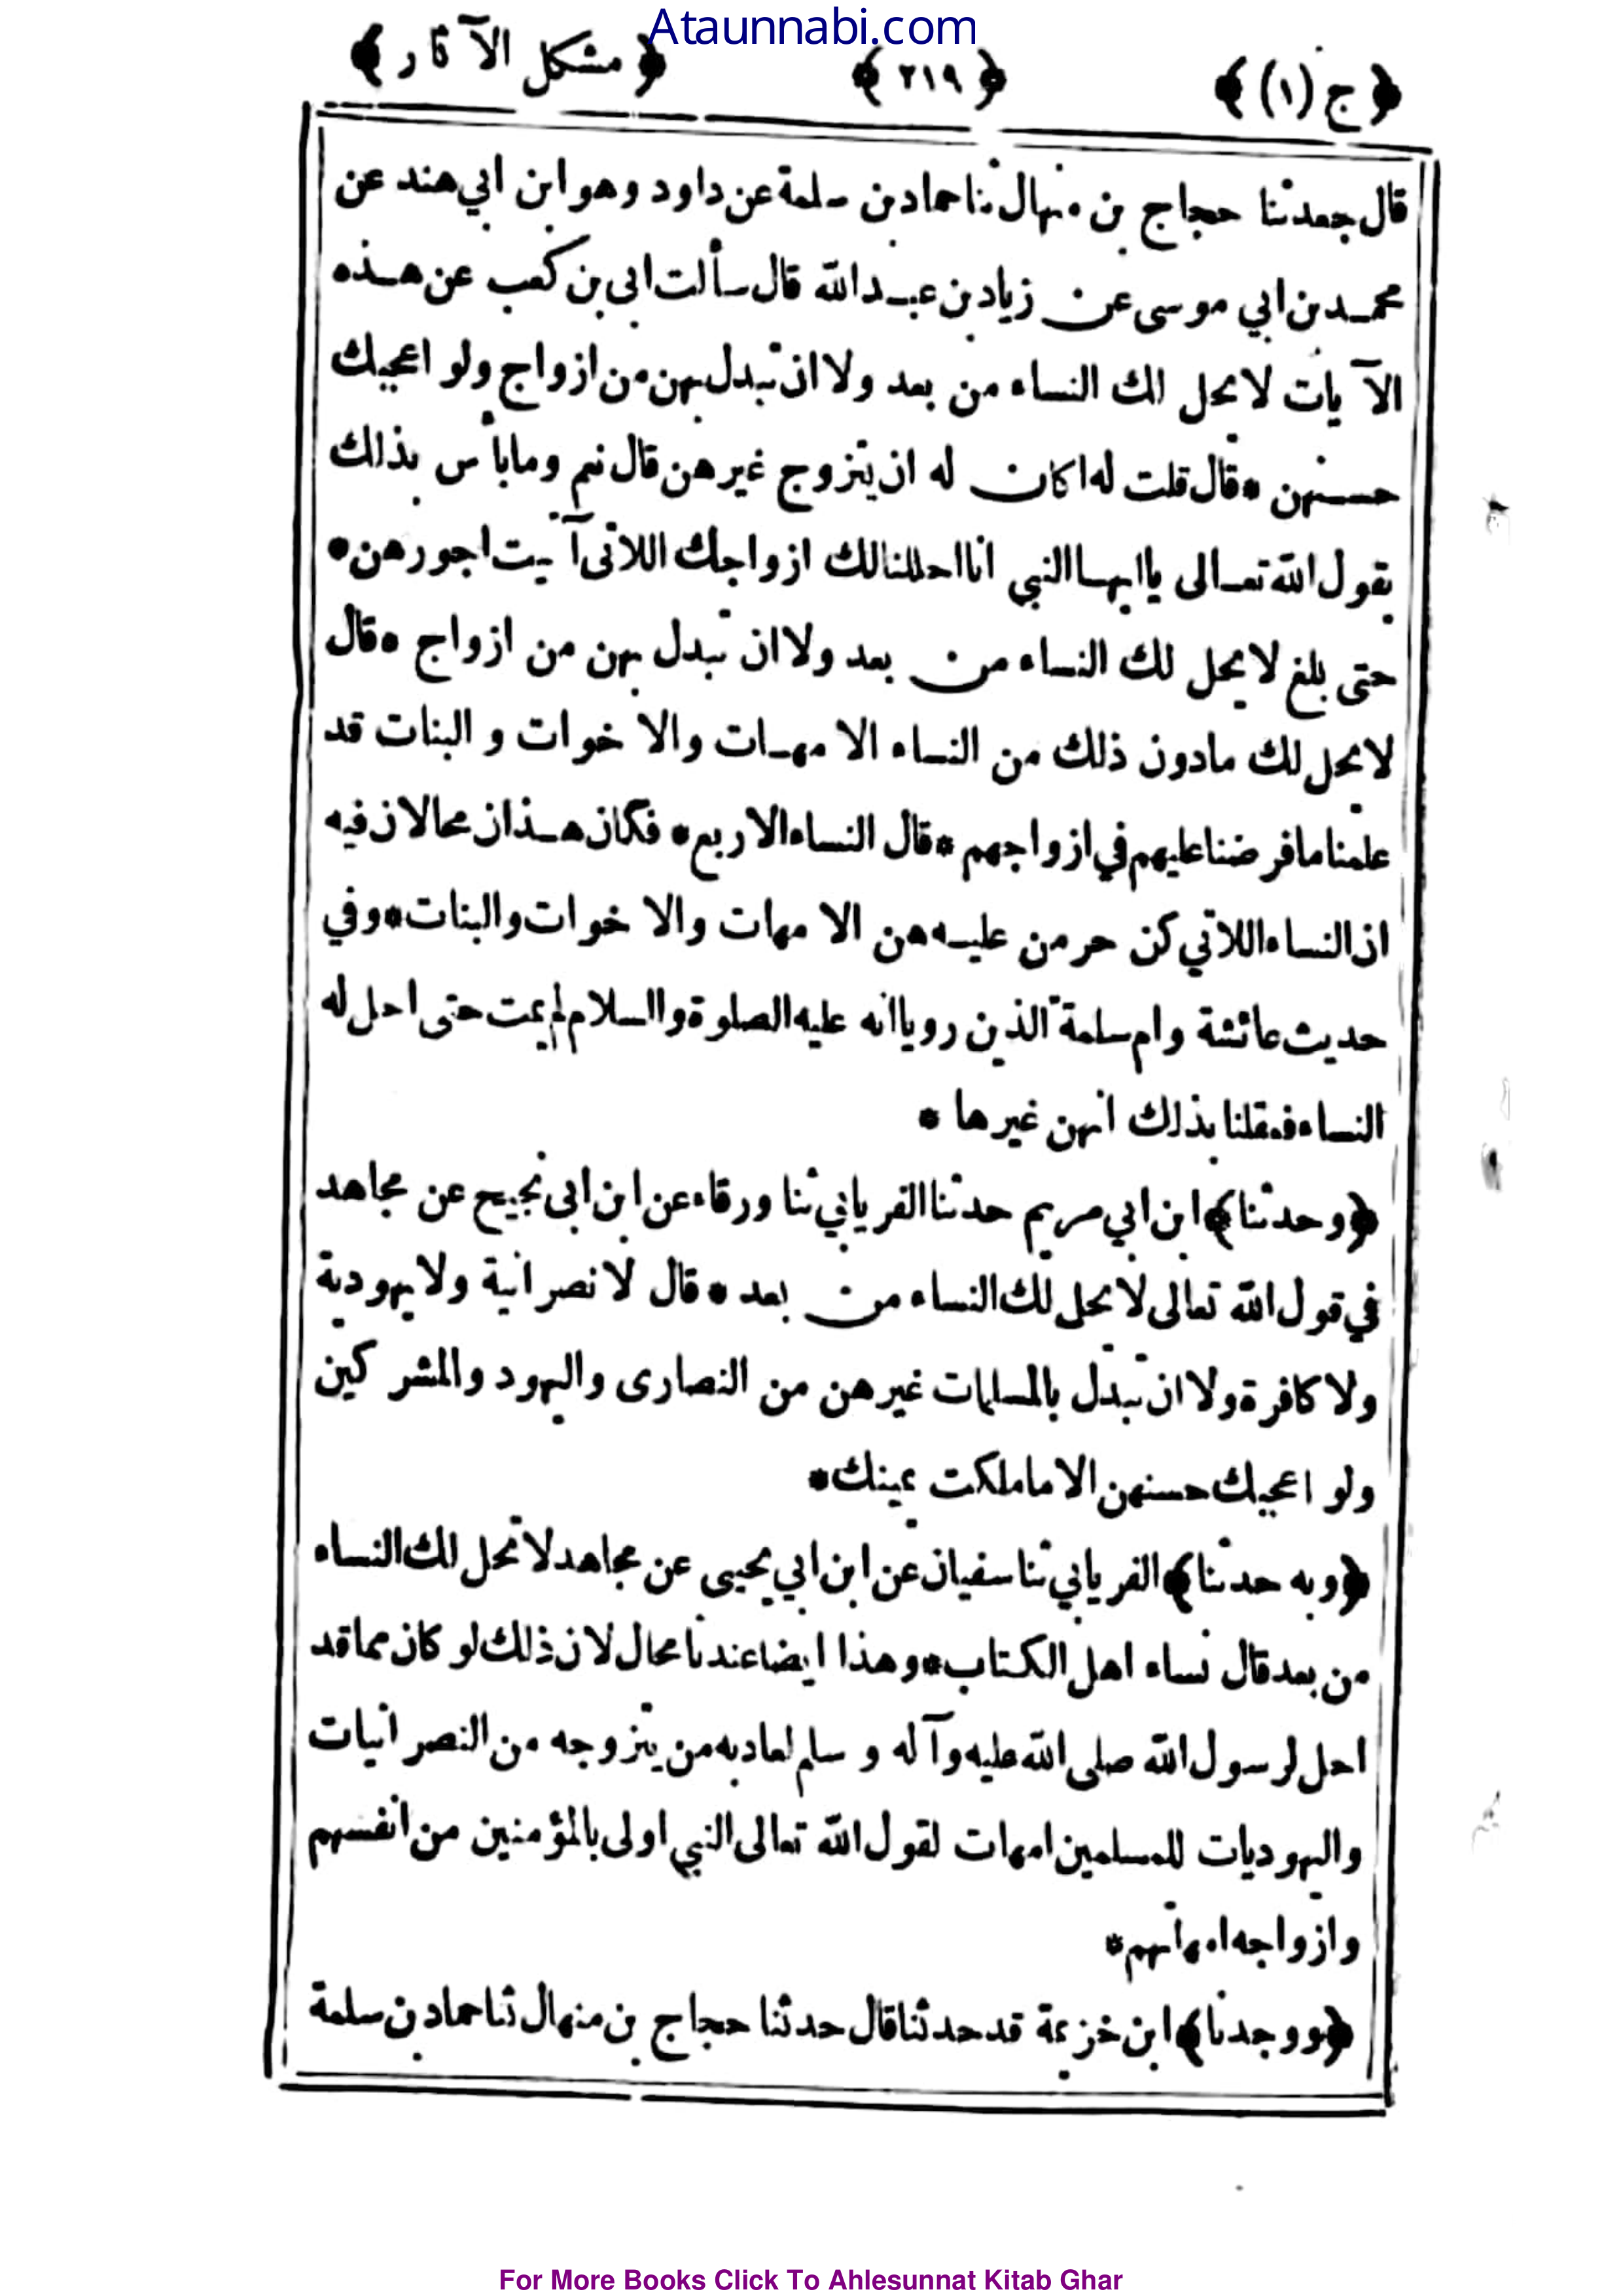 Ataunnabi.com
﴿ ج (١) ﴾ ﴿ ٢١٩ ﴾ ﴿ مشكل الآثار ﴾
قال حدثنا حجاج بن منهال ثنا حماد بن سلمة عن داود وهو ابن ابي هند عن
محمد بن ابي موسى عن زياد بن عبد الله قال سألت ابى بن كعب عن هذه
الآيات لا يحل لك النساء من بعد ولا ان تبدل بهن من ازواج ولو اعجبك
حسنهن * قال قلت له اكان له ان يتزوج غيرهن قال نعم وما بأس بذلك
يقول الله تعالى يا ايها النبي انا احللنا لك ازواجك اللاتى آتيت اجورهن *
حتى بلغ لا يحل لك النساء من بعد ولا ان تبدل بهن من ازواج * قال
لا يحل لك مادون ذلك من النساء الامهات والاخوات و البنات قد
علمنا ما فرضنا عليهم في ازواجهم * قال النساء الاربع * فكان هذان محالان فيه
اذ النساء اللاتي كن حرمن عليه هن الامهات والاخوات والبنات * وفي
حديث عائشة وام سلمة الذين رويا انه عليه الصلوة والسلام لم يمت حتى احل له
النساء فعقلنا بذلك انهن غيرها *
﴿وحدثنا﴾ ابن ابي مريم حدثنا الفريابي ثنا ورقاء عن ابن ابى نجيح عن مجاهد
في قول الله تعالى لا يحل لك النساء من بعد * قال لا نصرانية ولا يهودية
ولا كافرة ولا ان تبدل بالمسلمات غيرهن من النصارى واليهود والمشركين
ولو اعجبك حسنهن الا ما ملكت يمينك *
﴿وبه حدثنا﴾ الفريابي ثنا سفيان عن ابن ابي يحيى عن مجاهد لا تحل لك النساء
من بعد قال نساء اهل الكتاب * وهذا ايضا عندنا محال لان ذلك لو كان مما قد
احل لرسول الله صلى الله عليه وآله و سلم لعاد به من يتزوجه من النصرانيات
واليهوديات للمسلمين امهات لقول الله تعالى النبي اولى بالمؤمنين من انفسهم
وازواجه امهاتهم *
﴿ووجدنا﴾ ابن خزيمة قد حدثنا قال حدثنا حجاج بن منهال ثنا حماد بن سلمة
For More Books Click To Ahlesunnat Kitab Ghar